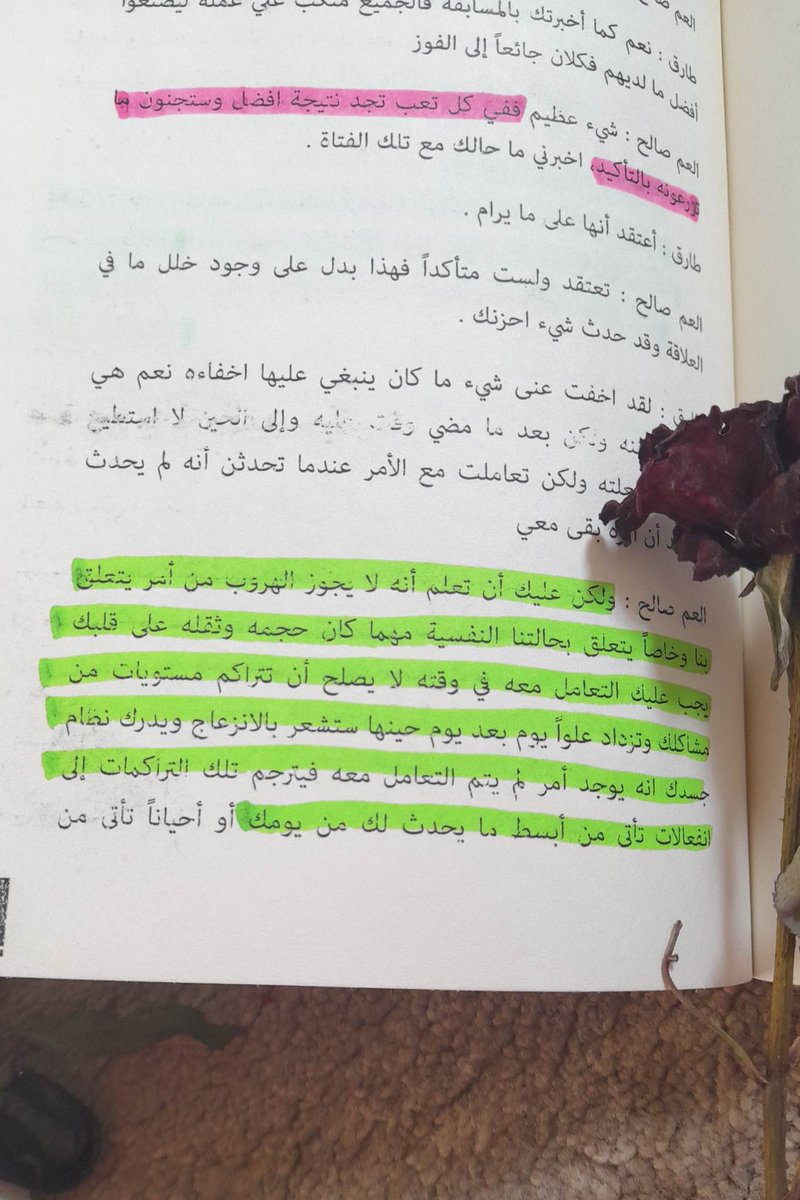 العم صالح
طارق : نعم كما أخبرتك بالمسابقة فالجميع منكب علي عمله ليصنعوا
أفضل ما لديهم فكلان جائعاً إلى الفوز
العم صالح : شيء عظيم ففي كل تعب تجد نتيجة افضل وستجنون ما
تزرعونه بالتأكيد، اخبرني ما حالك مع تلك الفتاة .
طارق : أعتقد أنها على ما يرام .
العم صالح : تعتقد ولست متأكداً فهذا بدل على وجود خلل ما في
العلاقة وقد حدث شيء احزنك .
: لقد اخفت عنى شيء ما كان ينبغي عليها اخفاءه نعم هي
ولكن بعد ما مضي وقت عليه وإلى الحين لا استطيع
ولكن تعاملت مع الأمر عندما تحدثن أنه لم يحدث
أن أثره بقى معي
العم صالح : ولكن عليك أن تعلم أنه لا يجوز الهروب من أمر يتعلق
بنا وخاصاً يتعلق بحالتنا النفسية مهما كان حجمه وثقله على قلبك
يجب عليك التعامل معه في وقته لا يصلح أن تتراكم مستويات من
مشاكلك وتزداد علواً يوم بعد يوم حينها ستشعر بالانزعاج ويدرك نظام
جسدك انه يوجد أمر لم يتم التعامل معه فيترجم تلك التراكمات إلى
انفعالات تأتى من أبسط ما يحدث لك من يومك أو أحياناً تأتى من